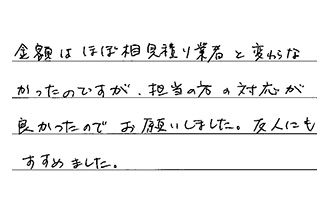 金額はほぼ相見積り業者と変わらな
かったのですが、担当の方の対応が
良かったので お願いしました。友人にも
すすめました。